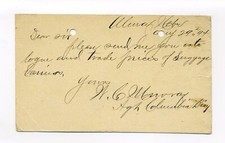 Alma, Neb
Aug 29 '94
Dear sir
please send me you cata
logue and trade prices of Luggage
Carrier,
Yours
W. C. Murray
Agt. Columbia